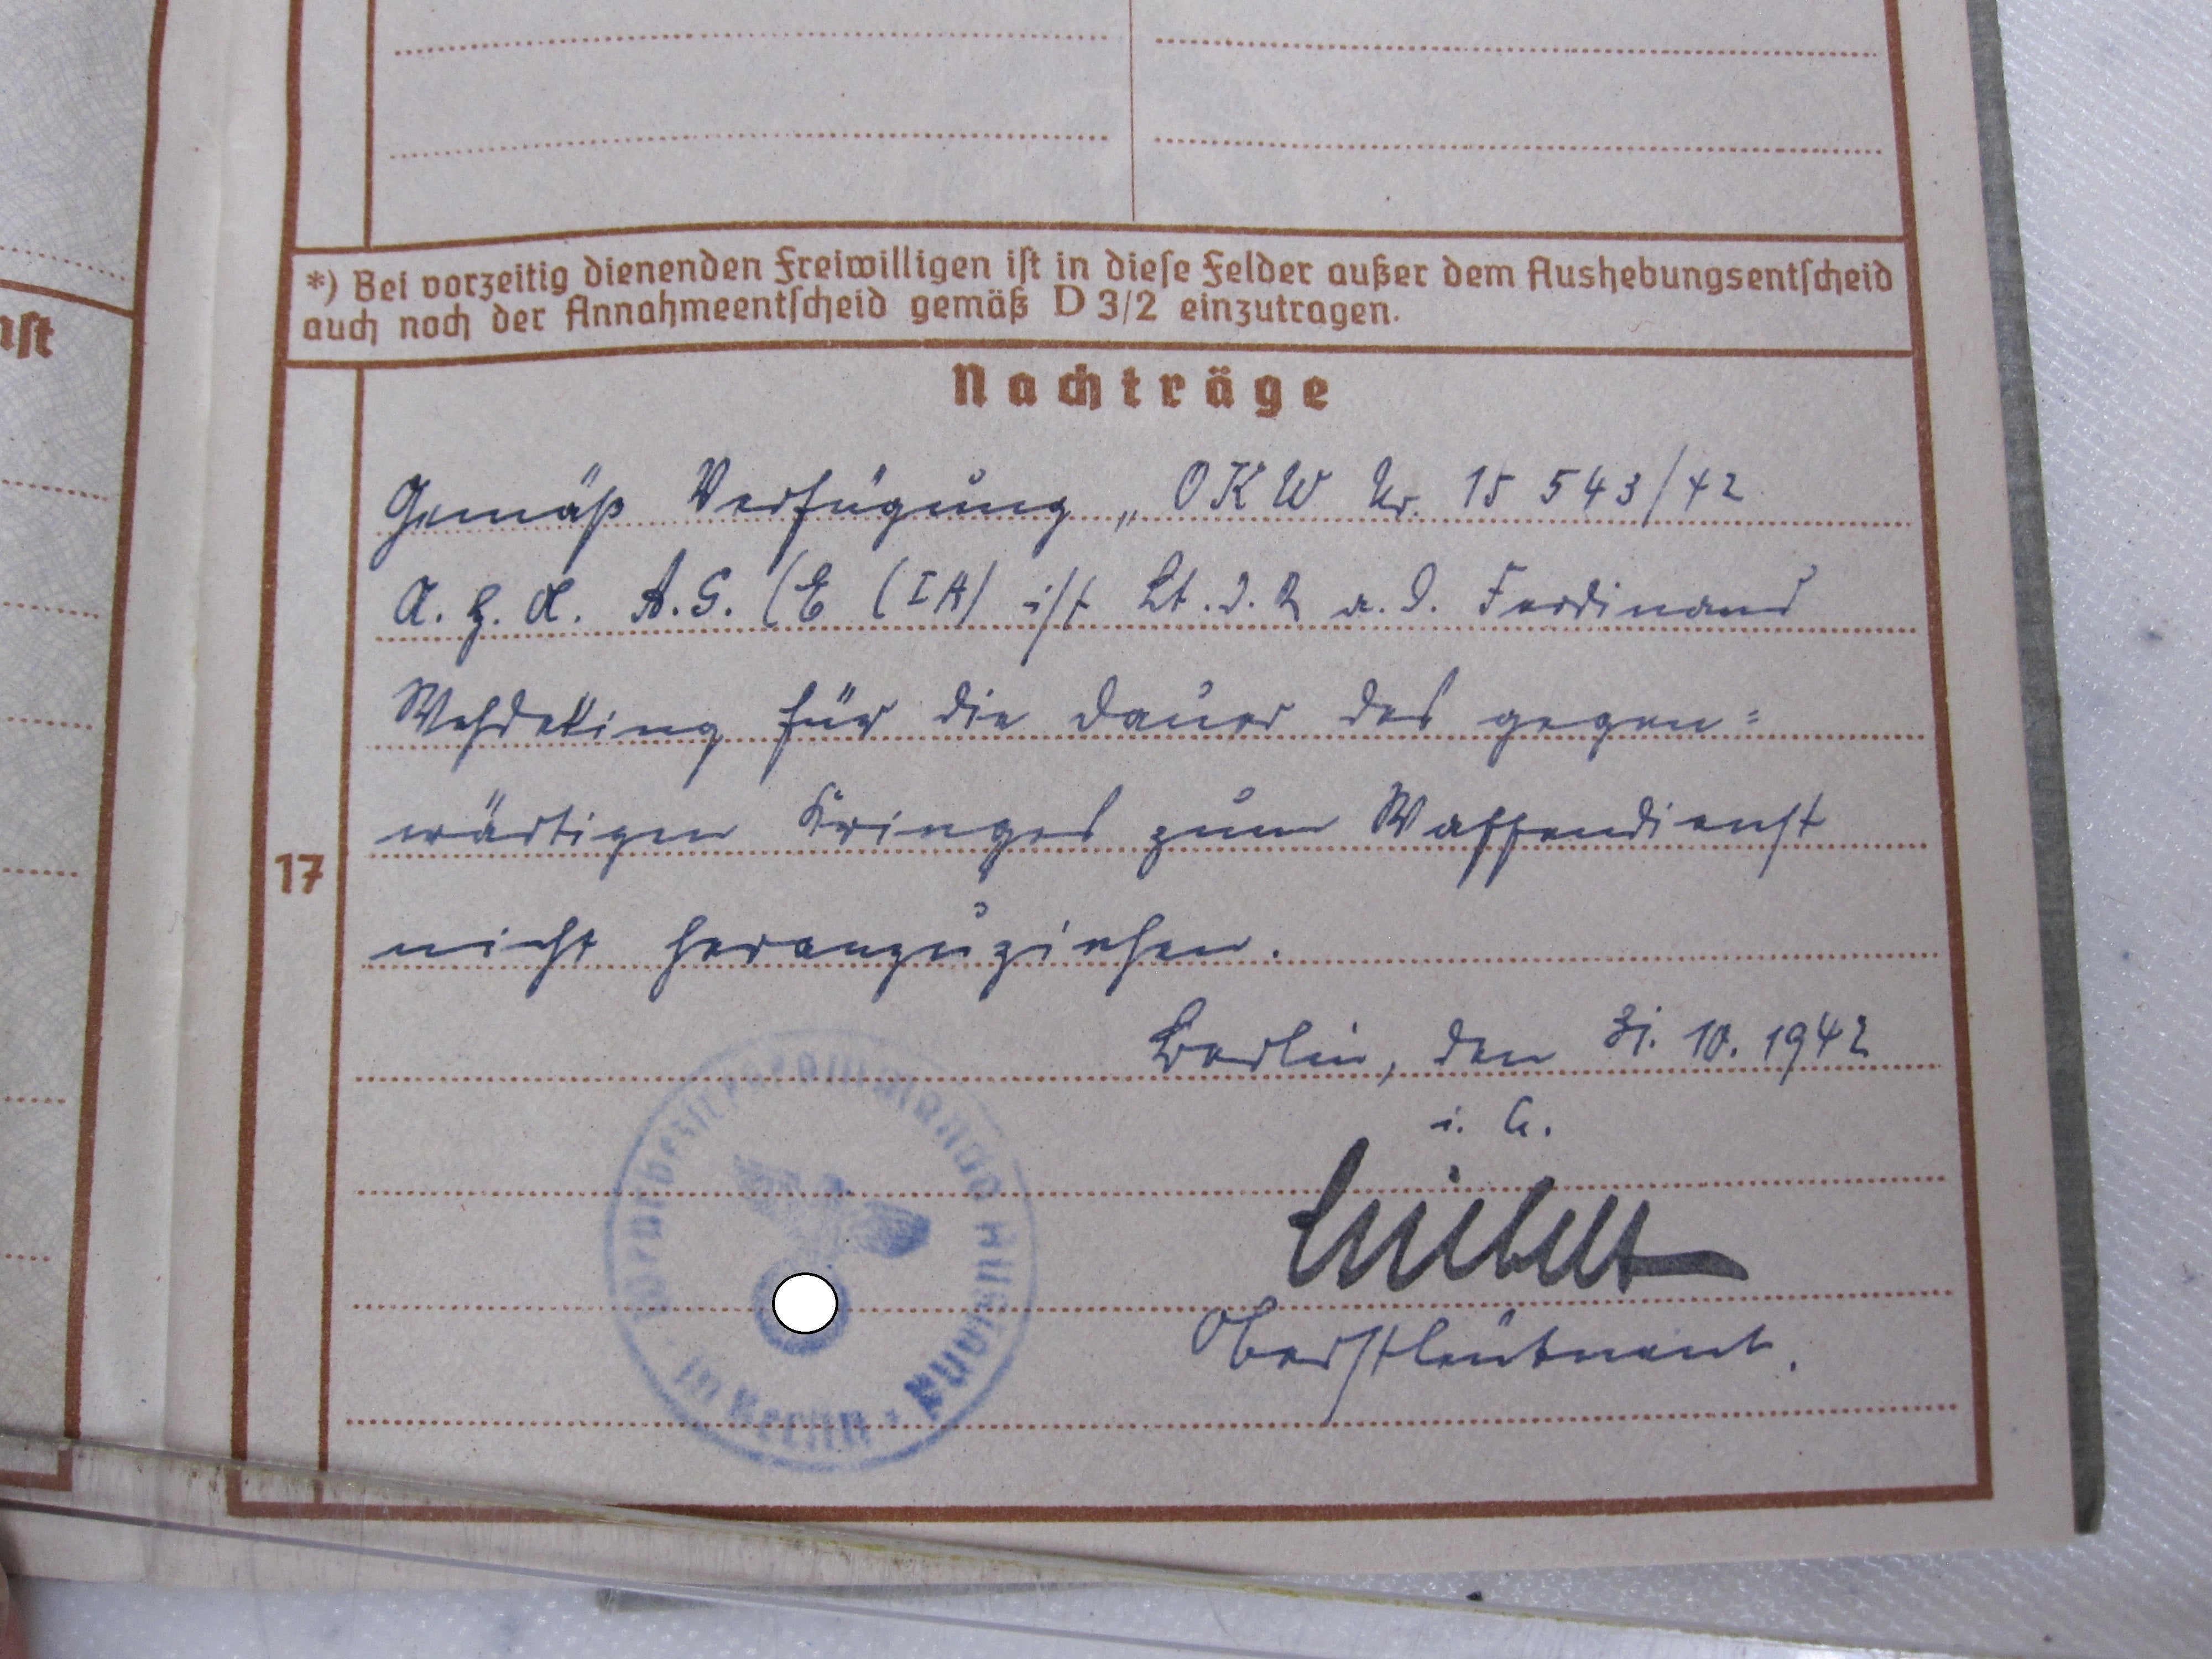 *) Bei vorzeitig dienenden Freiwilligen ist in diese Felder außer dem Aushebungsentscheid
auch noch der Annahmeentscheid gemäß D 3/2 einzutragen.
Nachträge
Gemäß Verfügung „OKW Nr. 15 543/42
A. H. A. A.G. (E (IA) ist Lt. d. R a. D. Ferdinand
Wehdeking für die Dauer des gegen=
wärtigen Krieges zum Waffendienst
17
nicht heranzuziehen.
Berlin, den 31. 10. 1942
i. A.
Oberstleutnant.
Wehrbezirkskommando Ausland
in Berlin